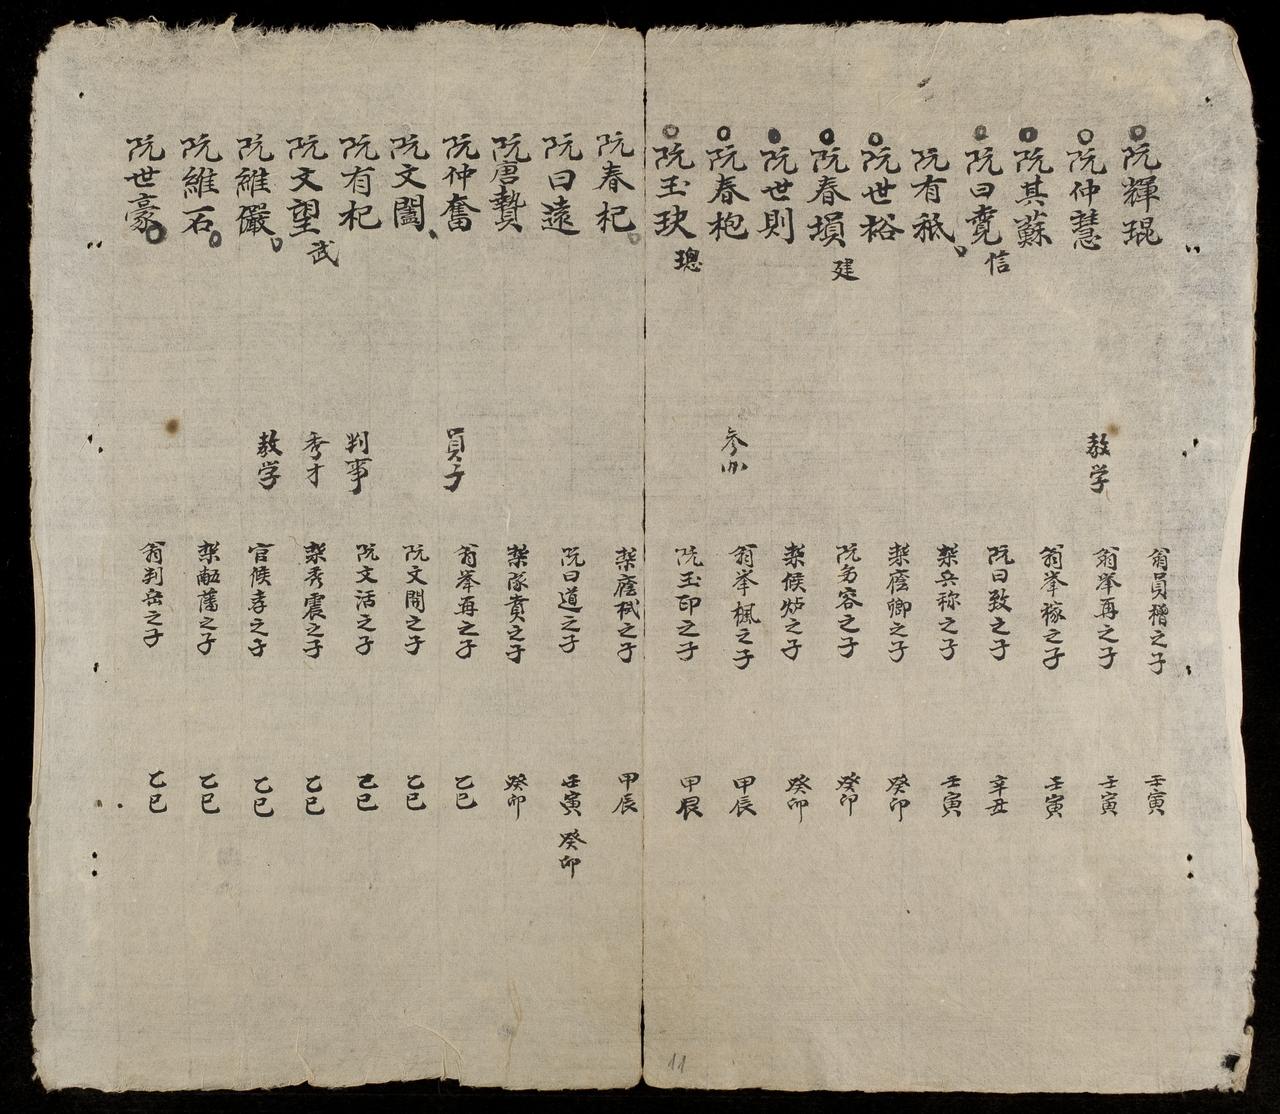 阮輝琨 翁員稽之子 壬寅
阮仲慧 教学 翁举再之子 壬寅
阮其蘇 翁举稼之子 壬寅
阮曰 信 阮曰致之子 辛丑
阮有祇 兵祢之子 壬寅
阮世裕 廕卿之子 癸卯
阮春塤 建 阮容之子 癸卯
阮世則 候之子 癸卯
阮春枹 参 翁举楓之子 甲辰
阮玉玦 璁 阮玉印之子 甲辰
阮春杞 廕栻之子 甲辰
阮曰遠 阮曰道之子 壬寅 癸卯
阮唐贄 隊賁之子 癸卯
阮仲奮 員子 翁举再之子 乙巳
阮文闔 阮文閉之子 乙巳
阮有杞 判事 阮文活之子 乙巳
阮文望 武 秀才 秀震之子 乙巳
阮維儼 教学 官候孝之子 乙巳
阮維石 藩之子 乙巳
阮世豪 翁判岳之子 乙巳
11